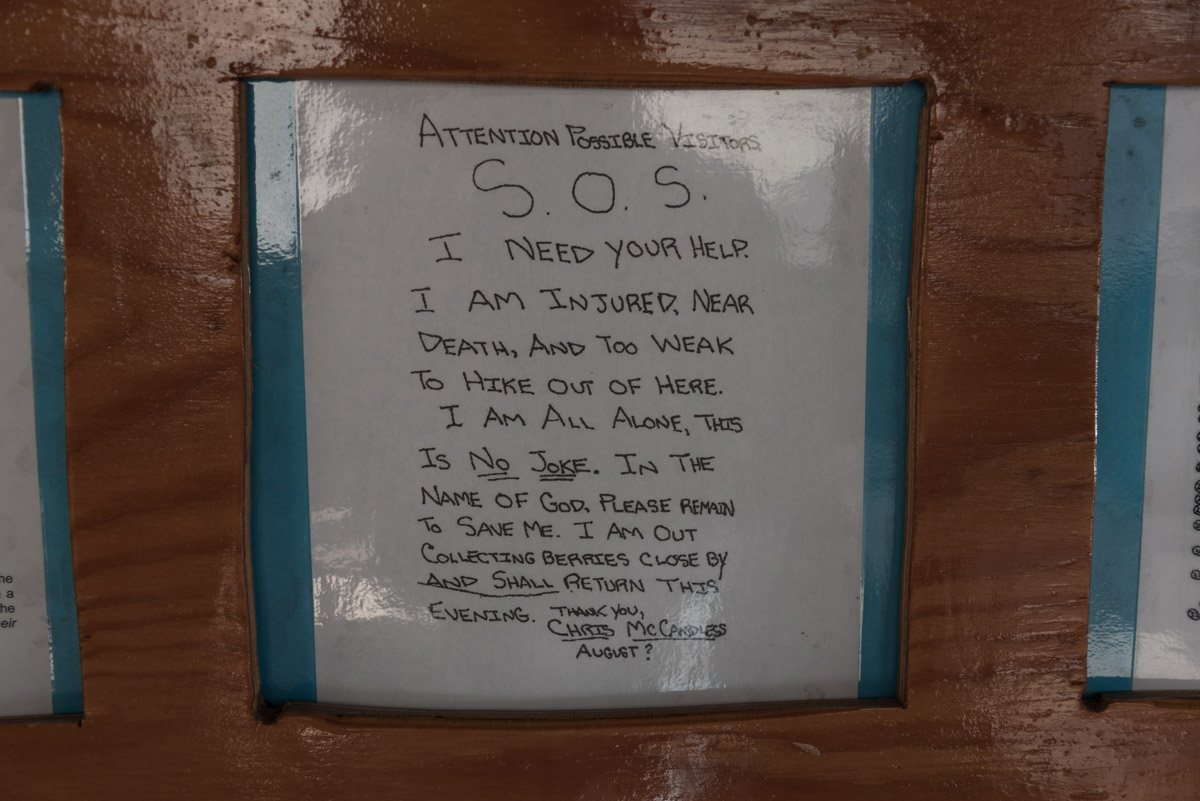 ATTENTION POSSIBLE VISITORS
S.O.S.
I NEED YOUR HELP.
I AM INJURED, NEAR
DEATH, AND TOO WEAK
TO HIKE OUT OF HERE.
I AM ALL ALONE, THIS
IS NO JOKE. IN THE
NAME OF GOD, PLEASE REMAIN
TO SAVE ME. I AM OUT
COLLECTING BERRIES CLOSE BY
AND SHALL RETURN THIS
EVENING. THANK YOU,
CHRIS McCANDLESS
AUGUST?